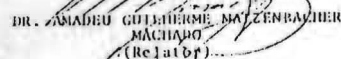 DR. AMADEU GUILHERME MATZENBACHER
MACHADO
(Relator)